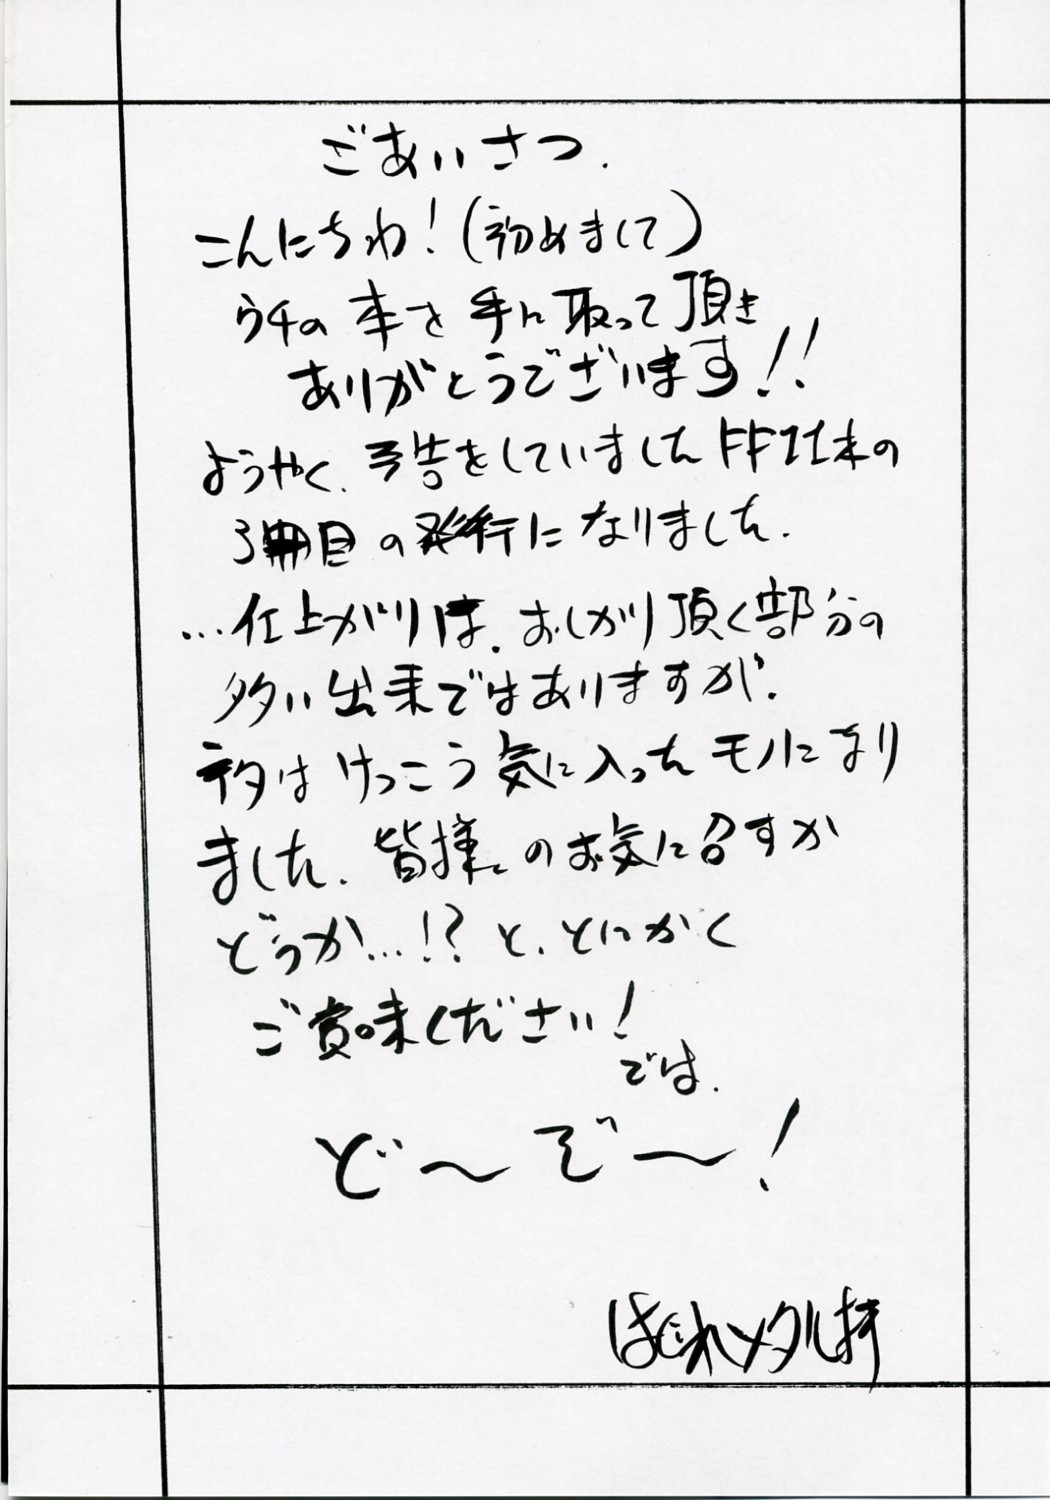 ごあいさつ.
こんにちわ!(初めまして)
ウチの本を手に取って頂き
ありがとうございます!!
ようやく、予告をしていましたFFXI本の
3冊目の発行になりました.
…仕上がりは、おしかり頂く部分の
多い出来ではありますが、
ネタはけっこう気に入ったモノになり
ました. 皆様のお気に召すか
どうか…!?と、とにかく
ご賞味ください!
では、
ど〜ぞ〜!
メタル